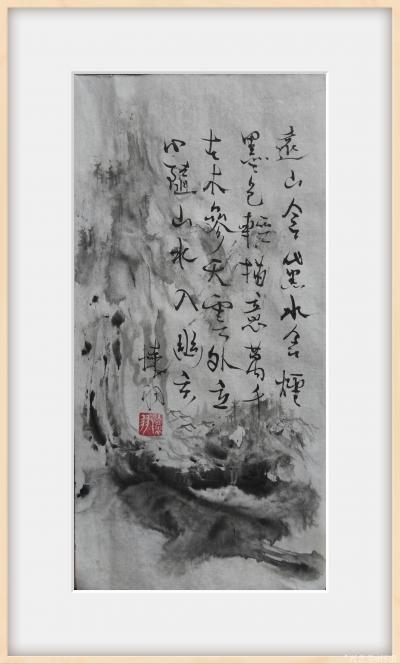 遠山含黛水含煙
墨色輕描意萬千
古木參天雲外立
心隨山水入幽玄